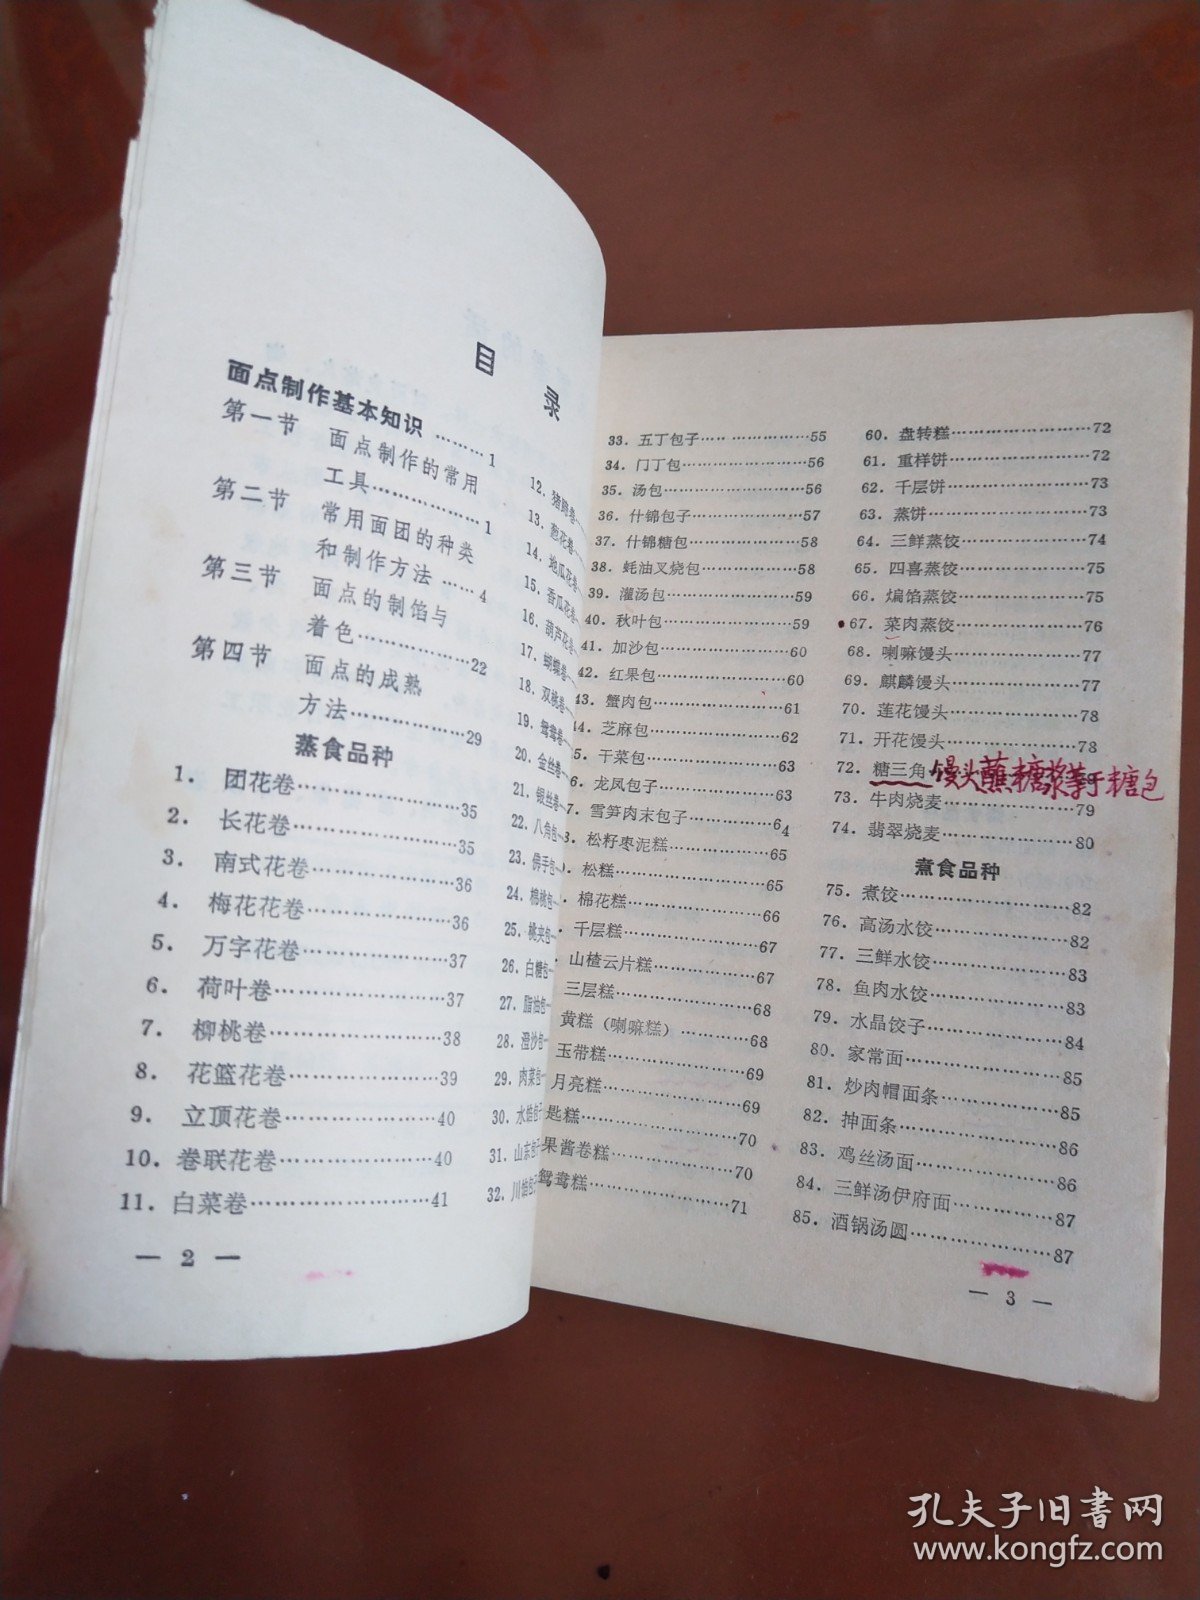 目 录
面点制作基本知识………1
第一节 面点制作的常用
工具……………1
第二节 常用面团的种类
和制作方法……4
第三节 面点的制馅与
着色……………22
第四节 面点的成熟
方法……………29
蒸食品种
1. 团花卷…………………35
2. 长花卷…………………35
3. 南式花卷………………36
4. 梅花花卷………………36
5. 万字花卷………………37
6. 荷叶卷…………………37
7. 柳桃卷…………………38
8. 花篮花卷………………39
9. 立顶花卷………………40
10. 卷联花卷………………40
11. 白菜卷…………………41
— 2 —
12. 猪蹄卷
13. 葱花卷
14. 地瓜花卷
15. 香瓜花卷
16. 葫芦花卷
17. 蝴蝶卷
18. 双桃卷
19. 鸳鸯卷
20. 金丝卷
21. 银丝卷
22. 八角包
23. 佛手包
24. 棉桃包
25. 桃夹包
26. 白糖包
27. 脂油包
28. 澄沙包
29. 肉菜包
30. 水馅包子
31. 山东包子
32. 川馅包子
33. 五丁包子………………55
34. 门丁包…………………56
35. 汤包……………………56
36. 什锦包子………………57
37. 什锦糖包………………58
38. 蚝油叉烧包……………58
39. 灌汤包…………………59
40. 秋叶包…………………59
41. 加沙包…………………60
42. 红果包…………………60
43. 蟹肉包…………………61
44. 芝麻包…………………62
5. 干菜包…………………63
6. 龙凤包子………………63
7. 雪笋肉末包子…………64
8. 松籽枣泥糕……………65
. 松糕……………………65
. 棉花糕…………………66
. 千层糕…………………67
. 山楂云片糕……………67
三层糕…………………68
黄糕（喇嘛糕）………68
玉带糕…………………69
月亮糕…………………69
匙糕……………………70
果酱卷糕………………70
鸳鸯糕…………………71
60. 盘转糕…………………72
61. 重样饼…………………72
62. 千层饼…………………73
63. 蒸饼……………………73
64. 三鲜蒸饺………………74
65. 四喜蒸饺………………75
66. 煸馅蒸饺………………75
67. 菜肉蒸饺………………76
68. 喇嘛馒头………………77
69. 麒麟馒头………………77
70. 莲花馒头………………78
71. 开花馒头………………78
72. 糖三角 馒头蘸糖浆等于糖包
73. 牛肉烧麦………………79
74. 翡翠烧麦………………80
煮食品种
75. 煮饺……………………82
76. 高汤水饺………………82
77. 三鲜水饺………………83
78. 鱼肉水饺………………83
79. 水晶饺子………………84
80. 家常面…………………85
81. 炒肉帽面条……………85
82. 抻面条…………………86
83. 鸡丝汤面………………86
84. 三鲜汤伊府面…………87
85. 酒锅汤圆………………87
— 3 —
孔夫子旧书网
www.kongfz.com